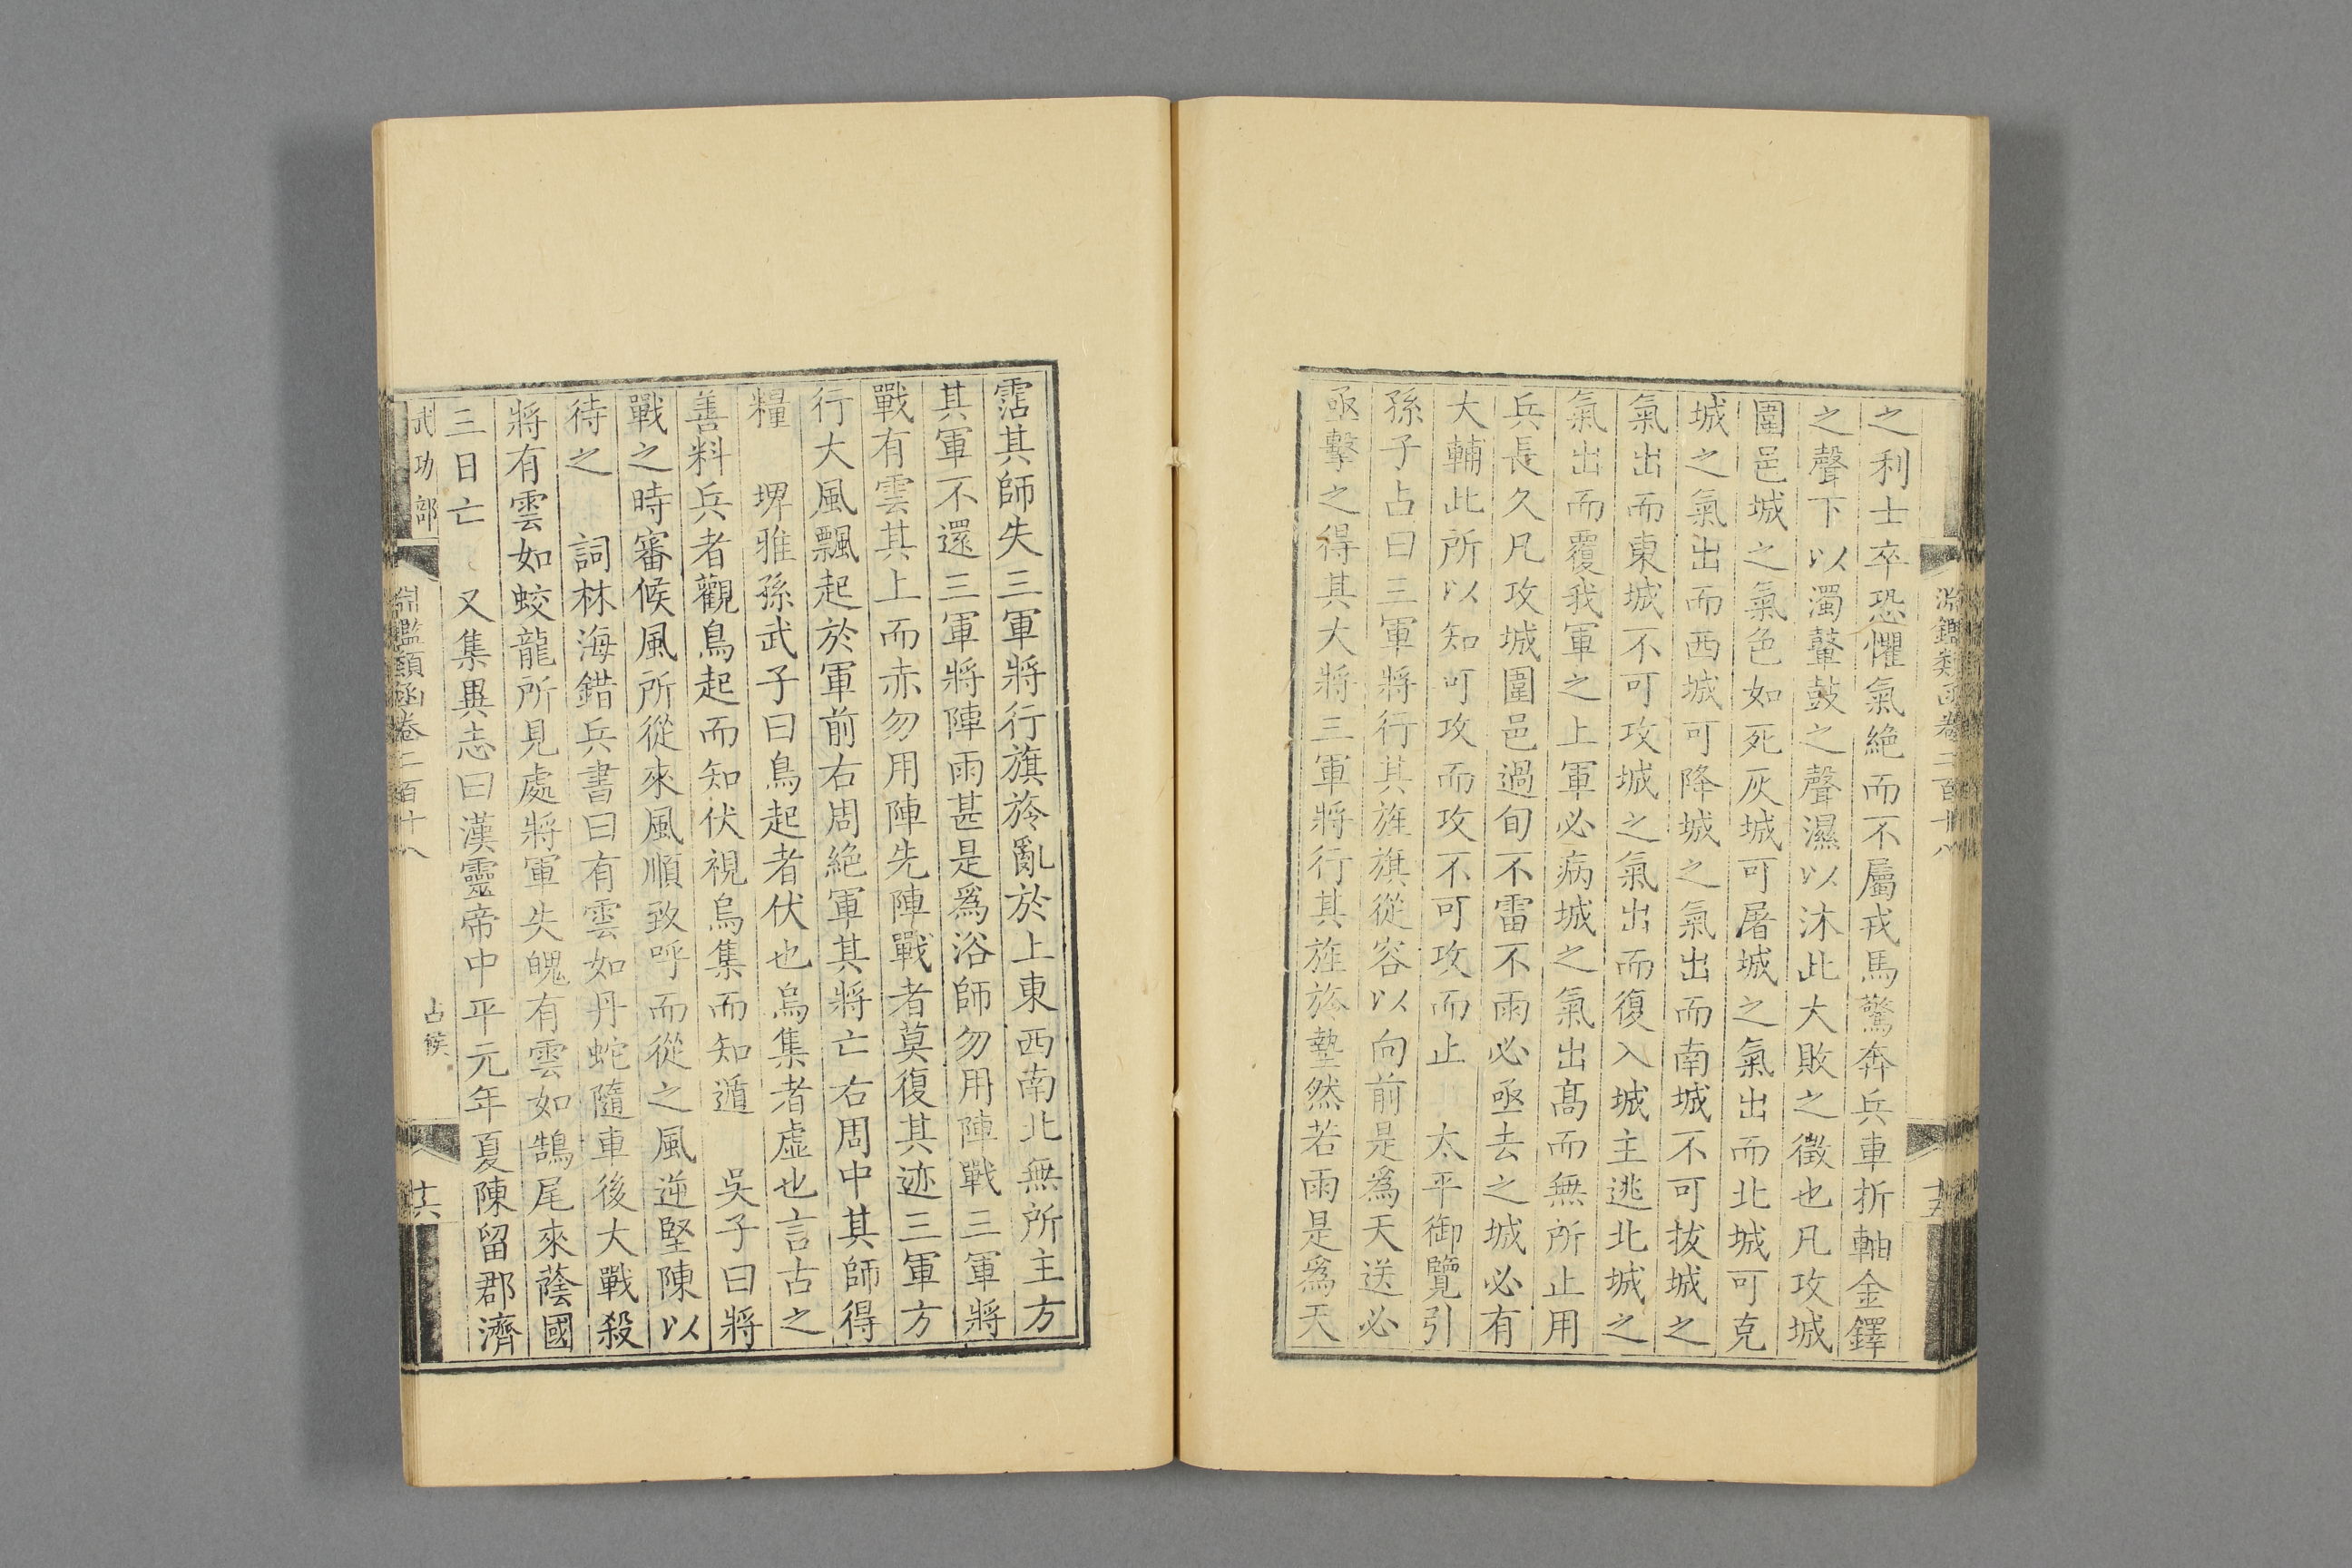 淵鑑類函卷二百十八
十五
之利士卒恐懼氣絶而不屬戎馬驚奔兵車折軸金鐸
之聲下以濁鼙鼓之聲濕以沐此大敗之徵也凡攻城
圍邑城之氣色如死灰城可屠城之氣出而北城可克
城之氣出而西城可降城之氣出而南城不可拔城之
氣出而東城不可攻城之氣出而復入城主逃北城之
氣出而覆我軍之上軍必病城之氣出髙而無所止用
兵長久凡攻城圍邑過旬不雷不雨必亟去之城必有
大輔此所以知可攻而攻不可攻而止 太平御覽引
孫子占曰三軍將行其旌旗從容以向前是爲天送必
亟擊之得其大將三軍將行其旌旂墊然若雨是爲天
霑其師失三軍將行旗旂亂於上東西南北無所主方
其軍不還三軍將陣雨甚是爲浴師勿用陣戰三軍將
戰有雲其上而赤勿用陣先陣戰者莫復其迹三軍方
行大風飄起於軍前右周絶軍其將亡右周中其師得
糧 堺雅孫武子曰鳥起者伏也烏集者虛也言古之
善料兵者觀鳥起而知伏視烏集而知遁 吳子曰將
戰之時審候風所從來風順致呼而從之風逆堅陳以
待之 詞林海錯兵書曰有雲如丹蛇隨車後大戰殺
將有雲如蛟龍所見處將軍失魄有雲如鵠尾來蔭國
三日亡 又集異志曰漢靈帝中平元年夏陳留郡濟
武功部
淵鑑類函卷二百十八
占候
十六